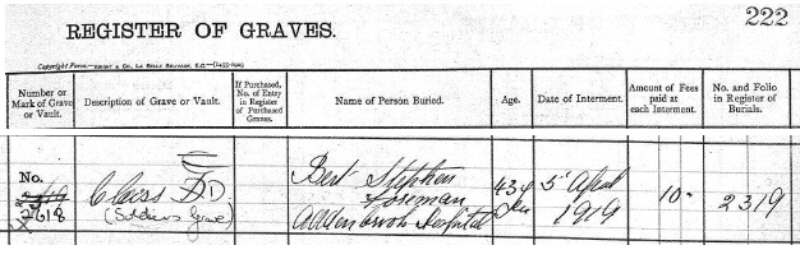 222
REGISTER OF GRAVES.
Number or Mark of Grave or Vault.
Description of Grave or Vault.
If Purchased, No. of Entry in Register of Purchased Graves.
Name of Person Buried.
Age.
Date of Interment.
Amount of Fees paid at each Interment.
No. and Folio in Register of Burials.
No.
2618
Class D.
(Soldiers Grave)
Bert Stephen
Foreman
Addenbrooks Hospital
43
5 April
1919
10
2319